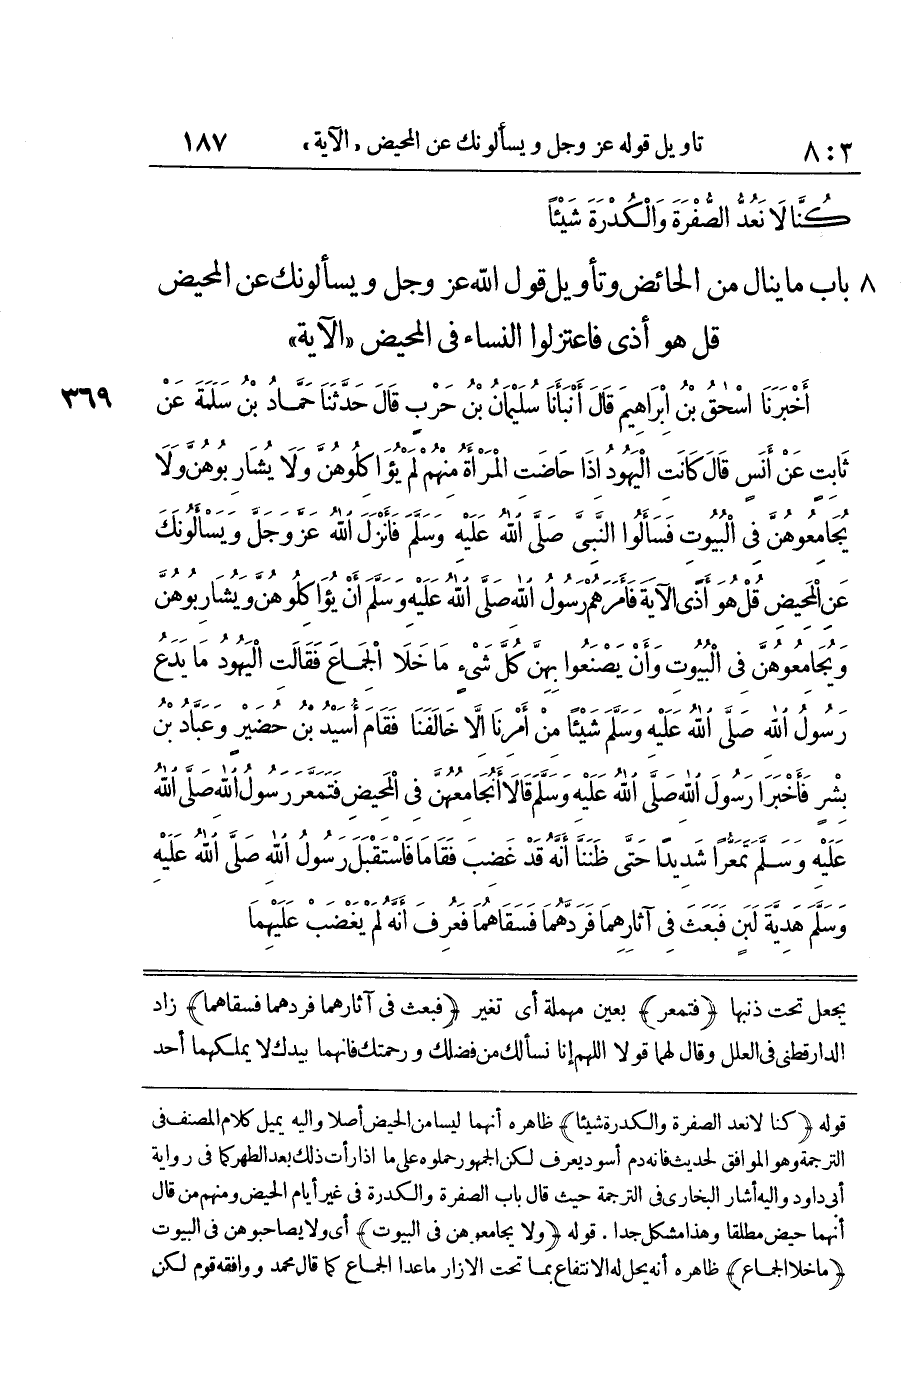 ٨:٣ تاويل قوله عز وجل ويسألونك عن المحيض «الآية» ١٨٧
كُنَّا لَا نَعُدُّ الصُّفْرَةَ وَالْكُدْرَةَ شَيْئًا
٨ باب ما ينال من الحائض وتأويل قول الله عز وجل ويسألونك عن المحيض
قل هو أذى فاعتزلوا النساء فى المحيض «الآية»
أَخْبَرَنَا اسْحٰقُ بْنُ ابْرَاهِيمَ قَالَ أَنْبَأَنَا سُلَيْمَانُ بْنُ حَرْبٍ قَالَ حَدَّثَنَا حَمَّادُ بْنُ سَلَمَةَ عَنْ ٣٦٩
ثَابِتٍ عَنْ أَنَسٍ قَالَ كَانَتِ الْيَهُودُ اذَا حَاضَتِ الْمَرْأَةُ مِنْهُمْ لَمْ يُؤَاكِلُوهُنَّ وَلَا يُشَارِبُوهُنَّ وَلَا
يُجَامِعُوهُنَّ فِى الْبُيُوتِ فَسَأَلُوا النَّبِىَّ صَلَّى اللهُ عَلَيْهِ وَسَلَّمَ فَأَنْزَلَ اللهُ عَزَّ وَجَلَّ وَيَسْأَلُونَكَ
عَنِ الْمَحِيضِ قُلْ هُوَ أَذًى الآيَةَ فَأَمَرَهُمْ رَسُولُ اللهِ صَلَّى اللهُ عَلَيْهِ وَسَلَّمَ أَنْ يُؤَاكِلُوهُنَّ وَيُشَارِبُوهُنَّ
وَيُجَامِعُوهُنَّ فِى الْبُيُوتِ وَأَنْ يَصْنَعُوا بِهِنَّ كُلَّ شَىْءٍ مَا خَلَا الْجِمَاعَ فَقَالَتِ الْيَهُودُ مَا يَدَعُ
رَسُولُ اللهِ صَلَّى اللهُ عَلَيْهِ وَسَلَّمَ شَيْئًا مِنْ أَمْرِنَا الَّا خَالَفَنَا فَقَامَ أُسَيْدُ بْنُ حُضَيْرٍ وَعَبَّادُ بْنُ
بِشْرٍ فَأَخْبَرَا رَسُولَ اللهِ صَلَّى اللهُ عَلَيْهِ وَسَلَّمَ قَالَا أَنُجَامِعُهُنَّ فِى الْمَحِيضِ فَتَمَعَّرَ رَسُولُ اللهِ صَلَّى اللهُ
عَلَيْهِ وَسَلَّمَ تَمَعُّرًا شَدِيدًا حَتَّى ظَنَنَّا أَنَّهُ قَدْ غَضِبَ فَقَامَا فَاسْتَقْبَلَ رَسُولُ اللهِ صَلَّى اللهُ عَلَيْهِ
وَسَلَّمَ هَدِيَّةَ لَبَنٍ فَبَعَثَ فِى آثَارِهِمَا فَرَدَّهُمَا فَسَقَاهُمَا فَعُرِفَ أَنَّهُ لَمْ يَغْضَبْ عَلَيْهِمَا
يجعل تحت ذنبها ﴿فتمعر﴾ بعين مهملة أى تغير ﴿فبعث فى آثارهما فردهما فسقاهما﴾ زاد
الدارقطنى فى العلل وقال لهما قولا اللهم إنا نسألك من فضلك ورحمتك فانهما بيدك لا يملكهما أحد
قوله ﴿كنا لا نعد الصفرة والكدرة شيئا﴾ ظاهره أنهما ليسا من الحيض أصلا واليه يميل كلام المصنف فى
الترجمة وهو الموافق لحديث فانه دم أسود يعرف لكن الجمهور حملوه على ما اذا رأت ذلك بعد الطهر كما فى رواية
أبى داود واليه أشار البخارى فى الترجمة حيث قال باب الصفرة والكدرة فى غير أيام الحيض ومنهم من قال
أنهما حيض مطلقا وهذا مشكل جدا . قوله ﴿ولا يجامعوهن فى البيوت﴾ أى ولا يصاحبوهن فى البيوت
﴿ما خلا الجماع﴾ ظاهره أنه يحل له الانتفاع بما تحت الازار ما عدا الجماع كما قال محمد ووافقه قوم لكن